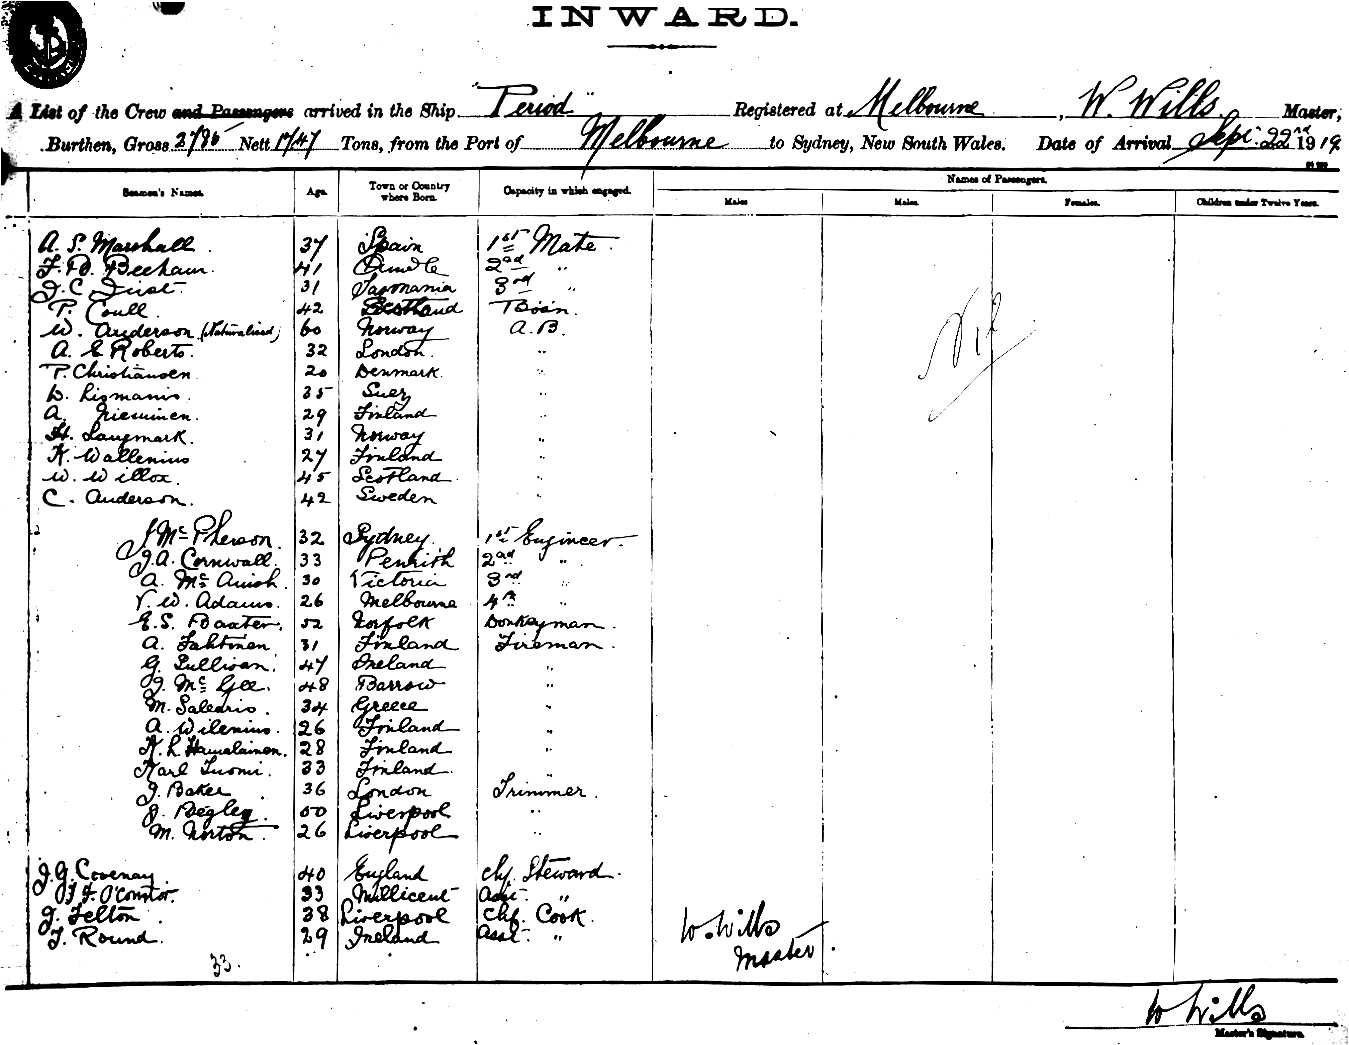 INWARD.
A List of the Crew and Passengers arrived in the Ship "Period" Registered at Melbourne, W. Wills Master,
Burthen, Gross 2786 Nett 1747 Tons, from the Port of Melbourne to Sydney, New South Wales. Date of Arrival Sept. 22nd 1919
Names of Passengers.
Seamen's Names. Age. Town or Country where Born. Capacity in which engaged. Males Males. Females. Children under Twelve Years.
A. S. Marshall. 37 Spain 1st Mate.
F. B. Beeham. 41 2nd "
J. C. 31 Tasmania 3rd "
P. Coull. 42 Scotland Bosn.
W. Anderson (Naturalised) 60 Norway A.B.
A. E Roberts. 32 London. "
P. Christiansen 20 Denmark. "
D. Lismanis. 35 Suez "
A. Nieminen. 29 Finland "
H. Langmark. 31 Norway "
K. Wallenius 27 Finland "
W. Willox. 45 Scotland "
C. Anderson. 42 Sweden "
Nil
J Mc Pherson. 32 Sydney. 1st Engineer.
J. A. Cornwall. 33 Penrith 2nd "
A. Mc 30 Victoria 3rd "
V. W. Adams. 26 Melbourne 4th "
E. S. Baxter. 52 Norfolk Donkeyman.
A. Lahtinen. 31 Finland Fireman.
G. Sullivan. 47 Ireland "
J. Mc Gee. 48 Barrow "
M. Salearis. 34 Greece "
A. Wilenius. 26 Finland "
K. L. Hamalainen. 28 Finland "
Karl Tuomi. 33 Finland. "
J. Baker. 36 London Trimmer.
J. Begley. 50 Liverpool "
M. Norton. 26 Liverpool "
J. G. Covenay. 40 England Chf. Steward.
J. F. O'Connor. 33 Millicent Asst. "
J. Felton. 38 Liverpool Chf. Cook.
T. Round. 29 Ireland Asst. "
W. Wills
Master.
33.
W Wills
Master's Signature.